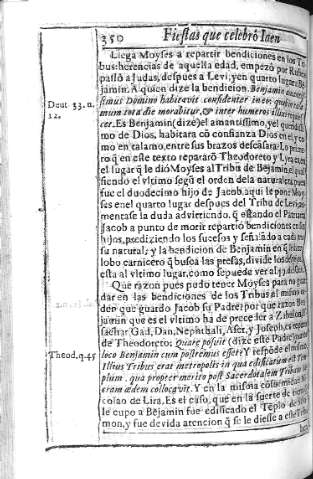 350 Fiestas que celebrò Iaen
Llega Moyses a repartir bendiciones en los Tri
bus: herencias de aquella edad, empezò por Ruben
passò a Iudas, despues a Levi, y en quarto lugar a Ben
jamin. A quien dize la bendicion. Benjamin
Deut. 33. n.
12.
simus Domini habitavit confidenter in eo: quasi in
mum tota die morabitur, & inter humeros illius
cet. Es Benjamin (dize) el amantissimo, y el
mo de Dios, habitarà cõ confianza en el, y co
mo en talamo, entre sus brazos descãsarà. Lo prime
ro q̃ en este texto repararõ Theodoreto y Lyra, es en
el lugar q̃ le diò Moyses al Tribu de Bẽjamin, el qual
siendo el vltimo segũ el orden de la naturaleza, pues
fue el duodecimo hijo de Jacob, aqui le pone Moy
ses en el quarto lugar despues del Tribu de Levi. Au
mentase la duda advirtiendo, q̃ estando el Patriarca
Jacob a punto de morir repartiò bendiciones en sus
hijos, prediziendo los sucesos y señalãdo a cada
su natural; y la bendicion de Benjamin en q̃ le
lobo carnicero q̃ busca las presas, divide los despojos,
esta al vltimo lugar, como se puede ver al
Que razon pues pudo tener Moyses para no guar
dar en las bendiciones de los Tribus el mismo or
den que guardò Jacob su Padre? por que razon Ben
jamin que es el vltimo ha de preceder a Zabulon,
sachar Gad, Dan, Nephthali, Aser, y Joseph,
Theod. q. 45
de Theodoreto: Quare posuit (dize este Padre)
loco Benjamin cum postremus esset? Y respõde
Illius Tribus erat metropolis in qua ædificatum est Tem
plum, qua propter merito post Sacerdotalem Tribum
eram ædem collocavit. Y en la misma conformidad Ni
colao de Lira, Es el caso, que en la suerte de
le cupo a Bẽjamin fue edificado el Tẽplo de Salo
mon, y fue devida atencion q̃ se le diesse a este Tribu